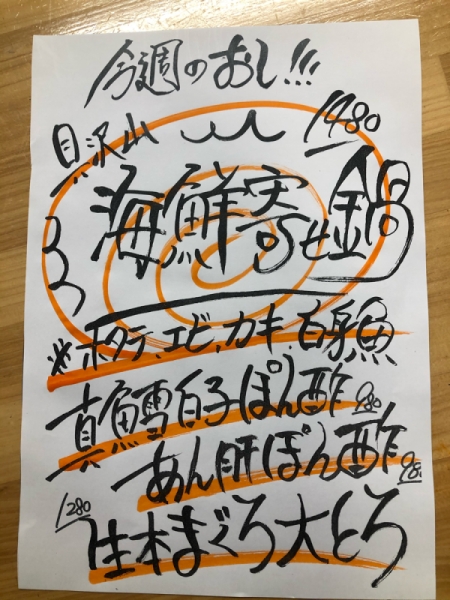 今週のおし!!!
具沢山
1480
海鮮寄せ鍋
※ホタテ、エビ、カキ 白身魚
真鱈白子ぽん酢 980
あん肝ぽん酢 980
1280
生本まぐろ大とろ